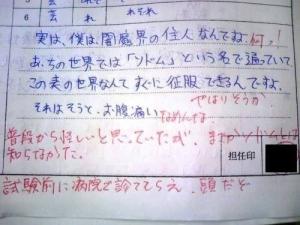 実は、僕は、闇魔界の住人なんですね。何っ!
あっちの世界では「ソドム」という名で通っていて
この表の世界なんてすぐに征服できるんですよ。
やはりそうか
それはそうと、お腹痛い
なめんな
普段から怪しいと思っていたが、まさかソドムとは
知らなかった。
担任印
試験前に病院で診てもらえ、頭だぞ